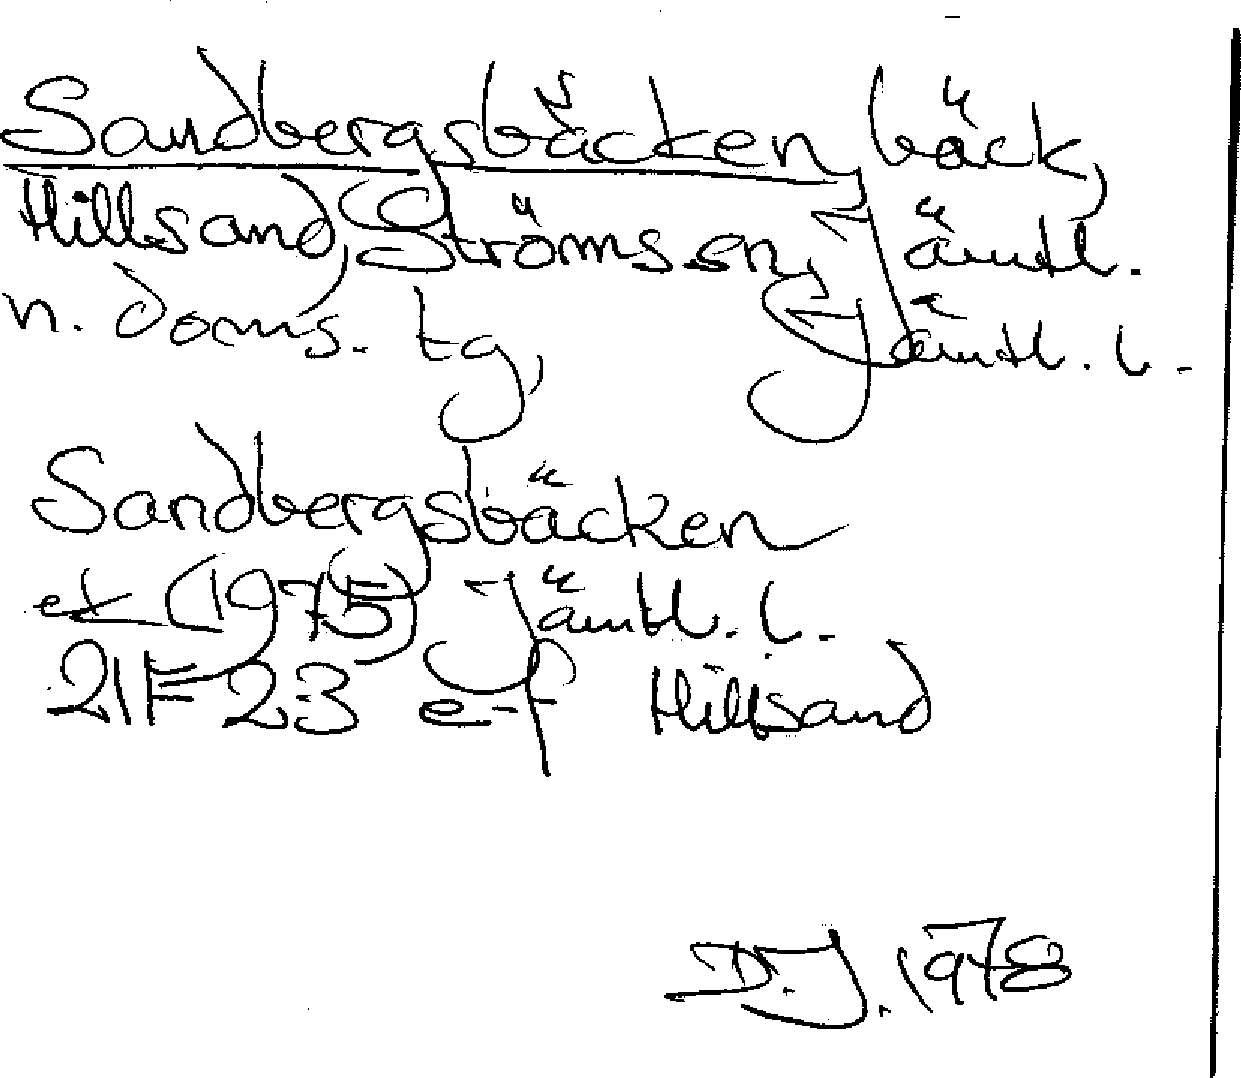 Sandbergsbäcken, bäck,
Hillsand, Ströms sn, Jämtl.
n. doms. tg, Jämtl. l.
Sandbergsbäcken
ek (1975) Jämtl. l.
21F 23 e-f Hillsand
D.J. 1978